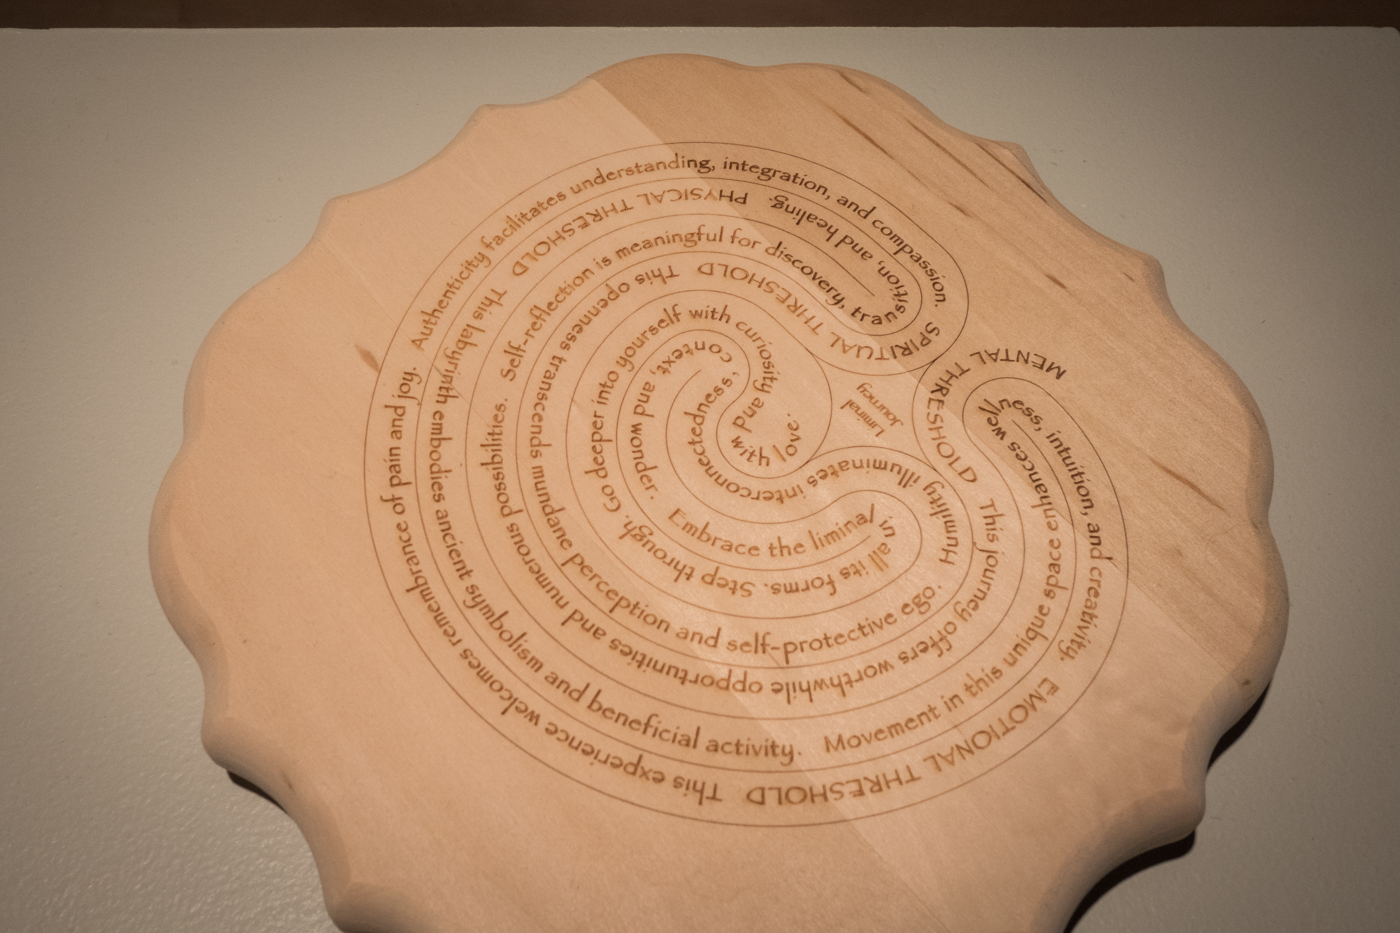 MENTAL THRESHOLD This journey offers worthwhile opportunities and numerous possibilities. Self-reflection is meaningful for discovery, transition, and healing.
PHYSICAL THRESHOLD This labyrinth embodies ancient symbolism and beneficial activity. Movement in this unique space enhances wellness, intuition, and creativity.
EMOTIONAL THRESHOLD This experience welcomes remembrance of pain and joy. Authenticity facilitates understanding, integration, and compassion.
SPIRITUAL THRESHOLD This openness transcends mundane perception and self-protective ego. Humility illuminates interconnectedness, context, and wonder.
Embrace the liminal in all its forms. Step through. Go deeper into yourself with curiosity and with love.
Liminal
Journey